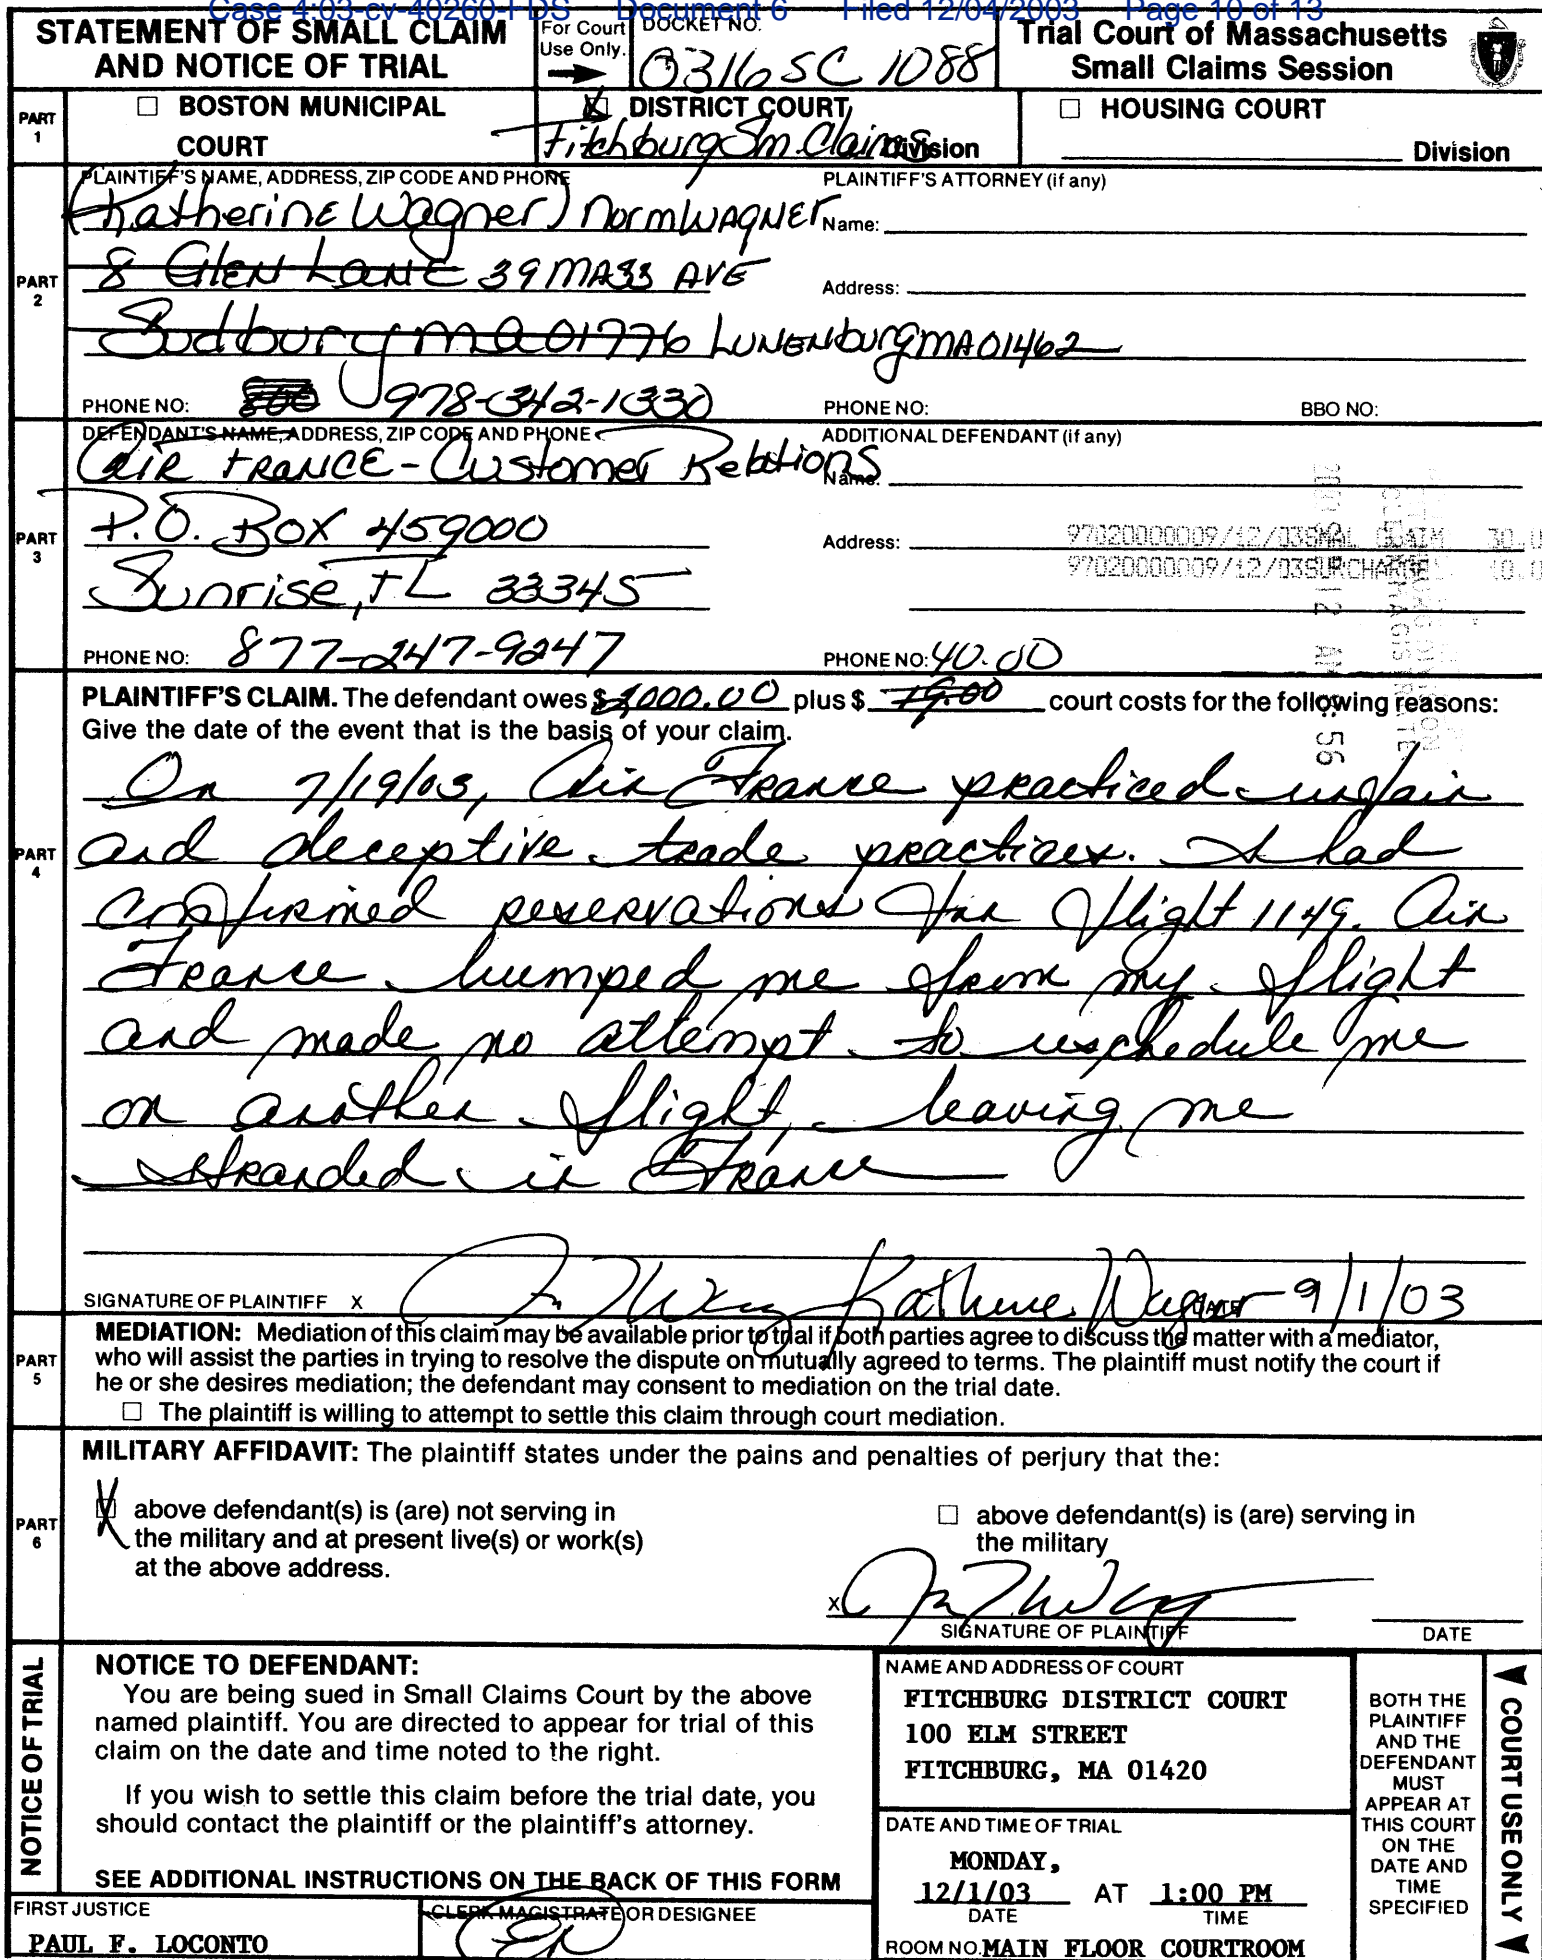 Case 4:03-cv-40260-FDS Document 6 Filed 12/04/2003 Page 10 of 13
STATEMENT OF SMALL CLAIM
AND NOTICE OF TRIAL
For Court
Use Only.
DOCKET NO.
0316 SC 1088
Trial Court of Massachusetts
Small Claims Session
PART
1
☐ BOSTON MUNICIPAL
COURT
☒ DISTRICT COURT
Fitchburg Sm. Claims Division
☐ HOUSING COURT
Division
PART
2
PLAINTIFF'S NAME, ADDRESS, ZIP CODE AND PHONE
(Katherine Wagner) Norm Wagner
8 Glen Lane 39 MASS AVE
Sudbury ma 01776 Lunenburg MA 01462
PHONE NO: 978-342-1330
PLAINTIFF'S ATTORNEY (if any)
Name:
Address:
PHONE NO: BBO NO:
PART
3
DEFENDANT'S NAME, ADDRESS, ZIP CODE AND PHONE
AIR FRANCE - Customer Relations
P.O. Box 459000
Sunrise, FL 33345
PHONE NO: 877-247-9247
ADDITIONAL DEFENDANT (if any)
Name:
Address:
97020000009/12/03SMAL CLAIM 30.0
97020000009/12/03SURCHARGE 10.0
PHONE NO: 40.00
PART
4
PLAINTIFF'S CLAIM. The defendant owes $ 2,000.00 plus $ 19.00 court costs for the following reasons:
Give the date of the event that is the basis of your claim.
On 7/19/03, Air France practiced unfair
and deceptive trade practices. I had
confirmed reservations for flight 1149. Air
France bumped me from my flight
and made no attempt to reschedule me
on another flight, leaving me
stranded in France
SIGNATURE OF PLAINTIFF X Katherine Wagner DATE 9/1/03
PART
5
MEDIATION: Mediation of this claim may be available prior to trial if both parties agree to discuss the matter with a mediator,
who will assist the parties in trying to resolve the dispute on mutually agreed to terms. The plaintiff must notify the court if
he or she desires mediation; the defendant may consent to mediation on the trial date.
☐ The plaintiff is willing to attempt to settle this claim through court mediation.
PART
6
MILITARY AFFIDAVIT: The plaintiff states under the pains and penalties of perjury that the:
☒ above defendant(s) is (are) not serving in
the military and at present live(s) or work(s)
at the above address.
☐ above defendant(s) is (are) serving in
the military
X
SIGNATURE OF PLAINTIFF DATE
NOTICE OF TRIAL
NOTICE TO DEFENDANT:
You are being sued in Small Claims Court by the above
named plaintiff. You are directed to appear for trial of this
claim on the date and time noted to the right.
If you wish to settle this claim before the trial date, you
should contact the plaintiff or the plaintiff's attorney.
SEE ADDITIONAL INSTRUCTIONS ON THE BACK OF THIS FORM
FIRST JUSTICE
PAUL F. LOCONTO
CLERK MAGISTRATE OR DESIGNEE
NAME AND ADDRESS OF COURT
FITCHBURG DISTRICT COURT
100 ELM STREET
FITCHBURG, MA 01420
DATE AND TIME OF TRIAL
MONDAY,
12/1/03 AT 1:00 PM
DATE TIME
ROOM NO. MAIN FLOOR COURTROOM
BOTH THE
PLAINTIFF
AND THE
DEFENDANT
MUST
APPEAR AT
THIS COURT
ON THE
DATE AND
TIME
SPECIFIED
COURT USE ONLY